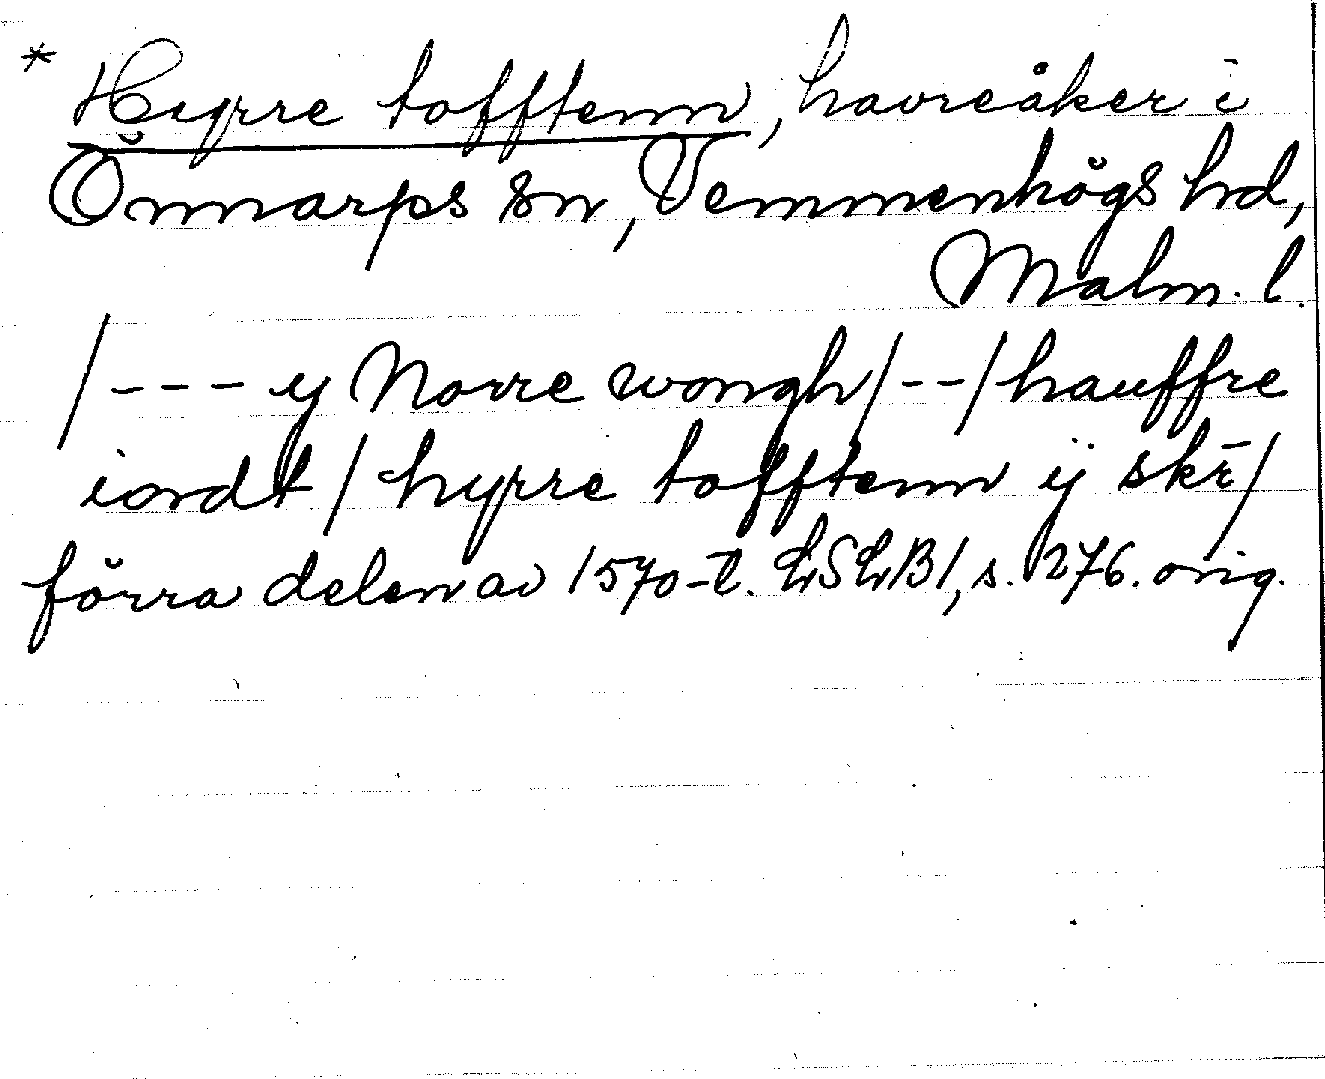 * Hyrre tofftenn, havreåker i
Önnarps sn, Vemmenhögs hd,
Malm. l.
/--- y Norre wongh/--/hauffre
iordt/hyrre tofftenn ij skr̄/
förra delen av 1570-t. LSLB1, s. 276. orig.